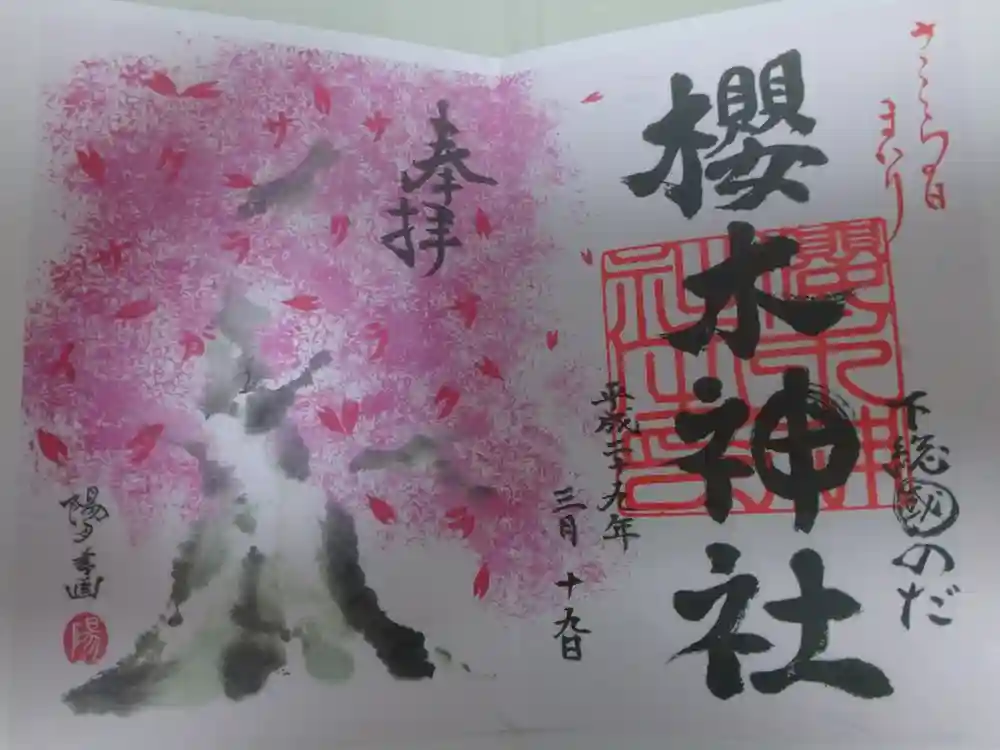 さくらの日
まいり
櫻木神社
下総國のだ
櫻木神
社之印
平成二十九年
三月十九日
奉拝
陽